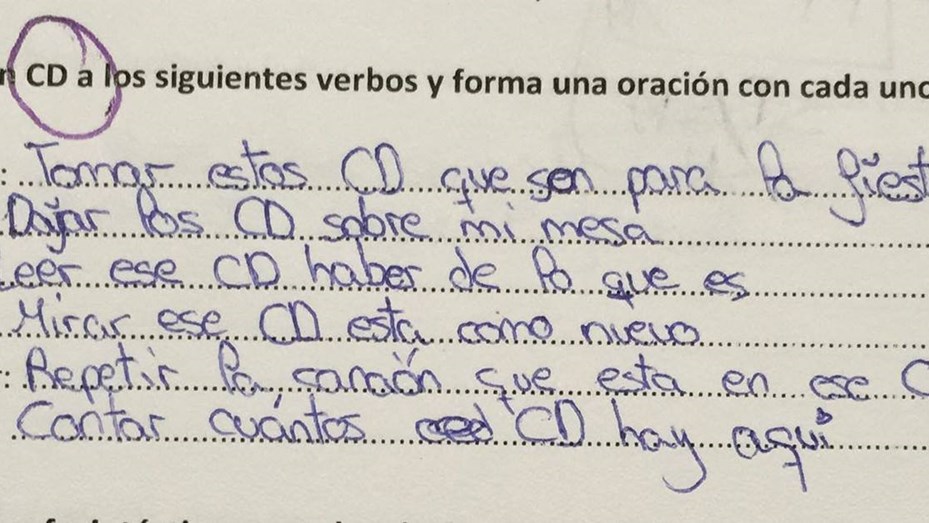 CD a los siguientes verbos y forma una oración con cada uno
: Tomar estos CD que son para la fiest
Dajar los CD sobre mi mesa
Leer ese CD haber de lo que es
Mirar ese CD esta como nuevo
: Repetir la canción que esta en ese C
Contar cuántos CD hay aqui